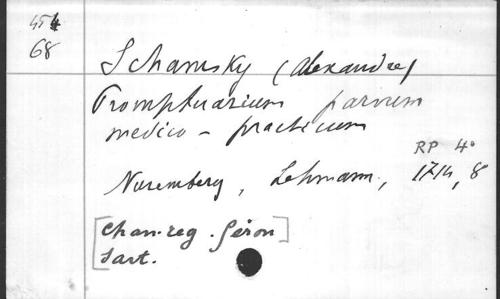 454
68
Schamsky (Alexandre)
Promptuarium parvum
medico - practicum
RP 4°
Nuremberg, Lehmann, 1714, 8
[Chan. reg. Géron]
Sart.